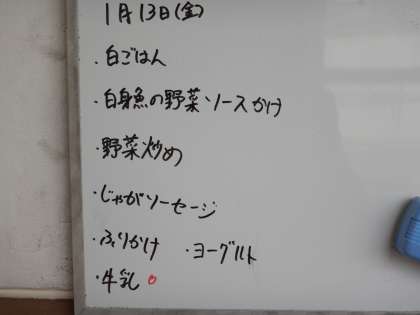 1月13日(金)
・白ごはん
・白身魚の野菜ソースかけ
・野菜炒め
・じゃがソーセージ
・ふりかけ ・ヨーグルト
・牛乳